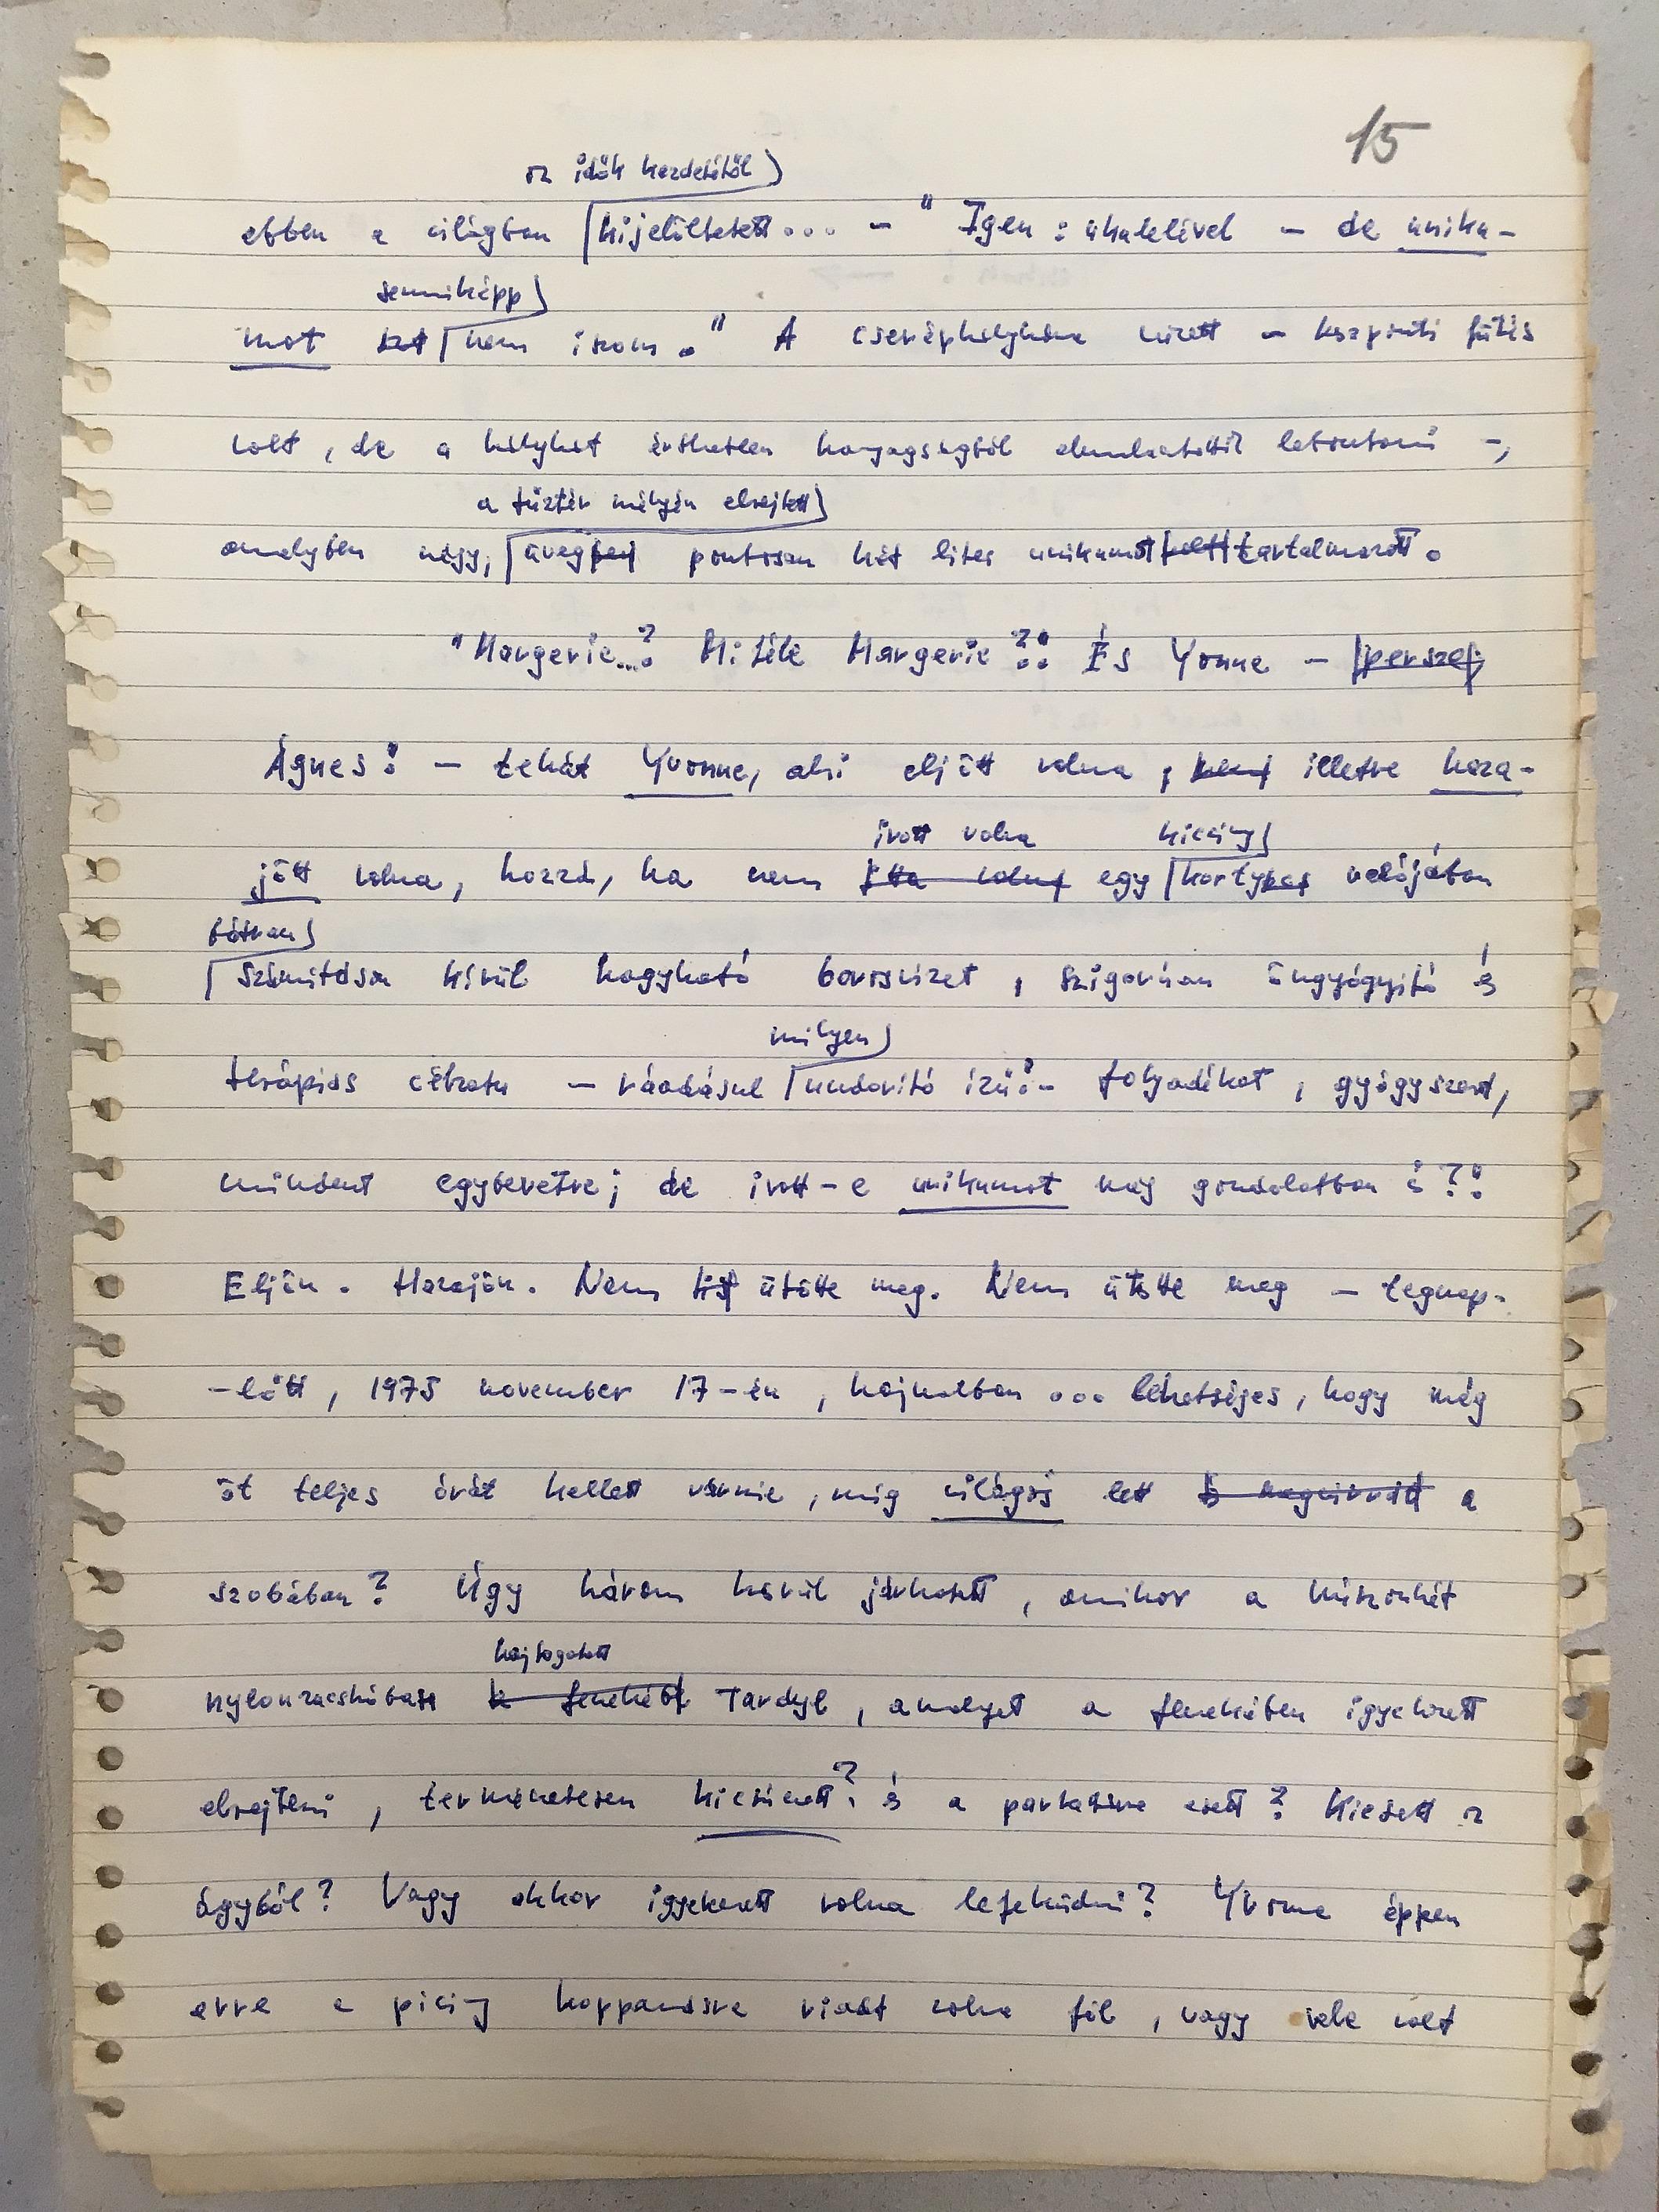 15
az idők kezdetétől
ebben a világban kijelöltetett... – " Igen: ukulelével – de uniku-
semmiképp
mot ezt nem iszom." A cserépkályhára nézett – központi fűtés
volt, de a kályhát érthetetlen hanyagságból elmulasztották lebontani –,
a tűztér mélyén elrejtett
amelyben négy, üveg pontosan két liter unikumot tartalmazott.
"Margerie...? Miféle Margerie?! És Yonne – persze,
Ágnes! – tehát Yvonne, aki eljött volna, illetve haza-
ivott volna kicsiny
jött volna, hozzá, ha nem itta volna egy kortyot valójában
bátran
számításon kívül hagyható borvizet, szigorúan öngyógyító és
milyen
terápiás célzatu – ráadásul undorító izü!– folyadékot, gyógyszert,
mindent egybevetve; de ivott-e unikumot még gondolatban is?!
Eljön. Hazajön. Nem ütötte meg. Nem ütötte meg – tegnap-
-előtt, 1975 november 17-én, hajnalban ... lehetséges, hogy még
öt teljes órát kellett várnia, míg világos lett és megvirradt a
szobában? Úgy három körül járhatott, amikor a húszonkét
hajtogatott
nylonzacskóban a fenekébe Tardyl, amelyet a fenekében igyekezett
elrejteni, természetesen kicsúszott? és a parkettára esett? Kiesett az
ágyból? Vagy akkor igyekezett volna lefeküdni? Yvonne éppen
erre a piciny koppanásra riadt volna föl, vagy vele volt